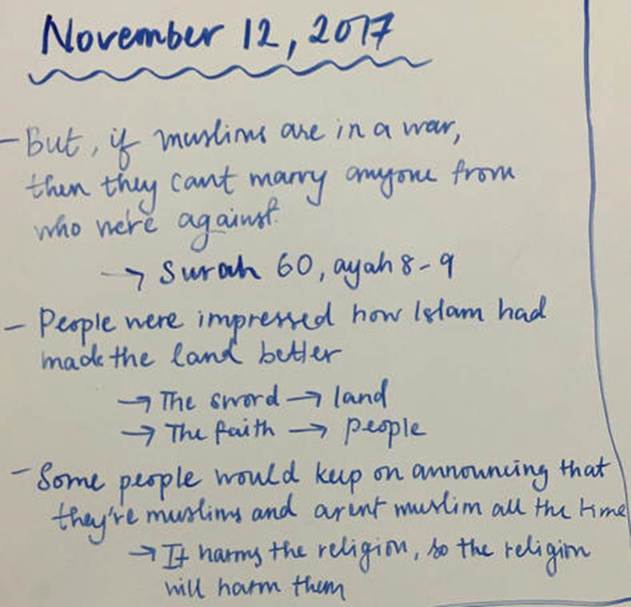 November 12, 2017
- But, if muslims are in a war,
then they cant marry anyone from
who we're against.
→ Surah 60, ayah 8-9
- People were impressed how Islam had
made the land better
→ The sword → land
→ The faith → people
- Some people would keep on announcing that
they're muslims and arent muslim all the time
→ It harms the religion, so the religion
will harm them